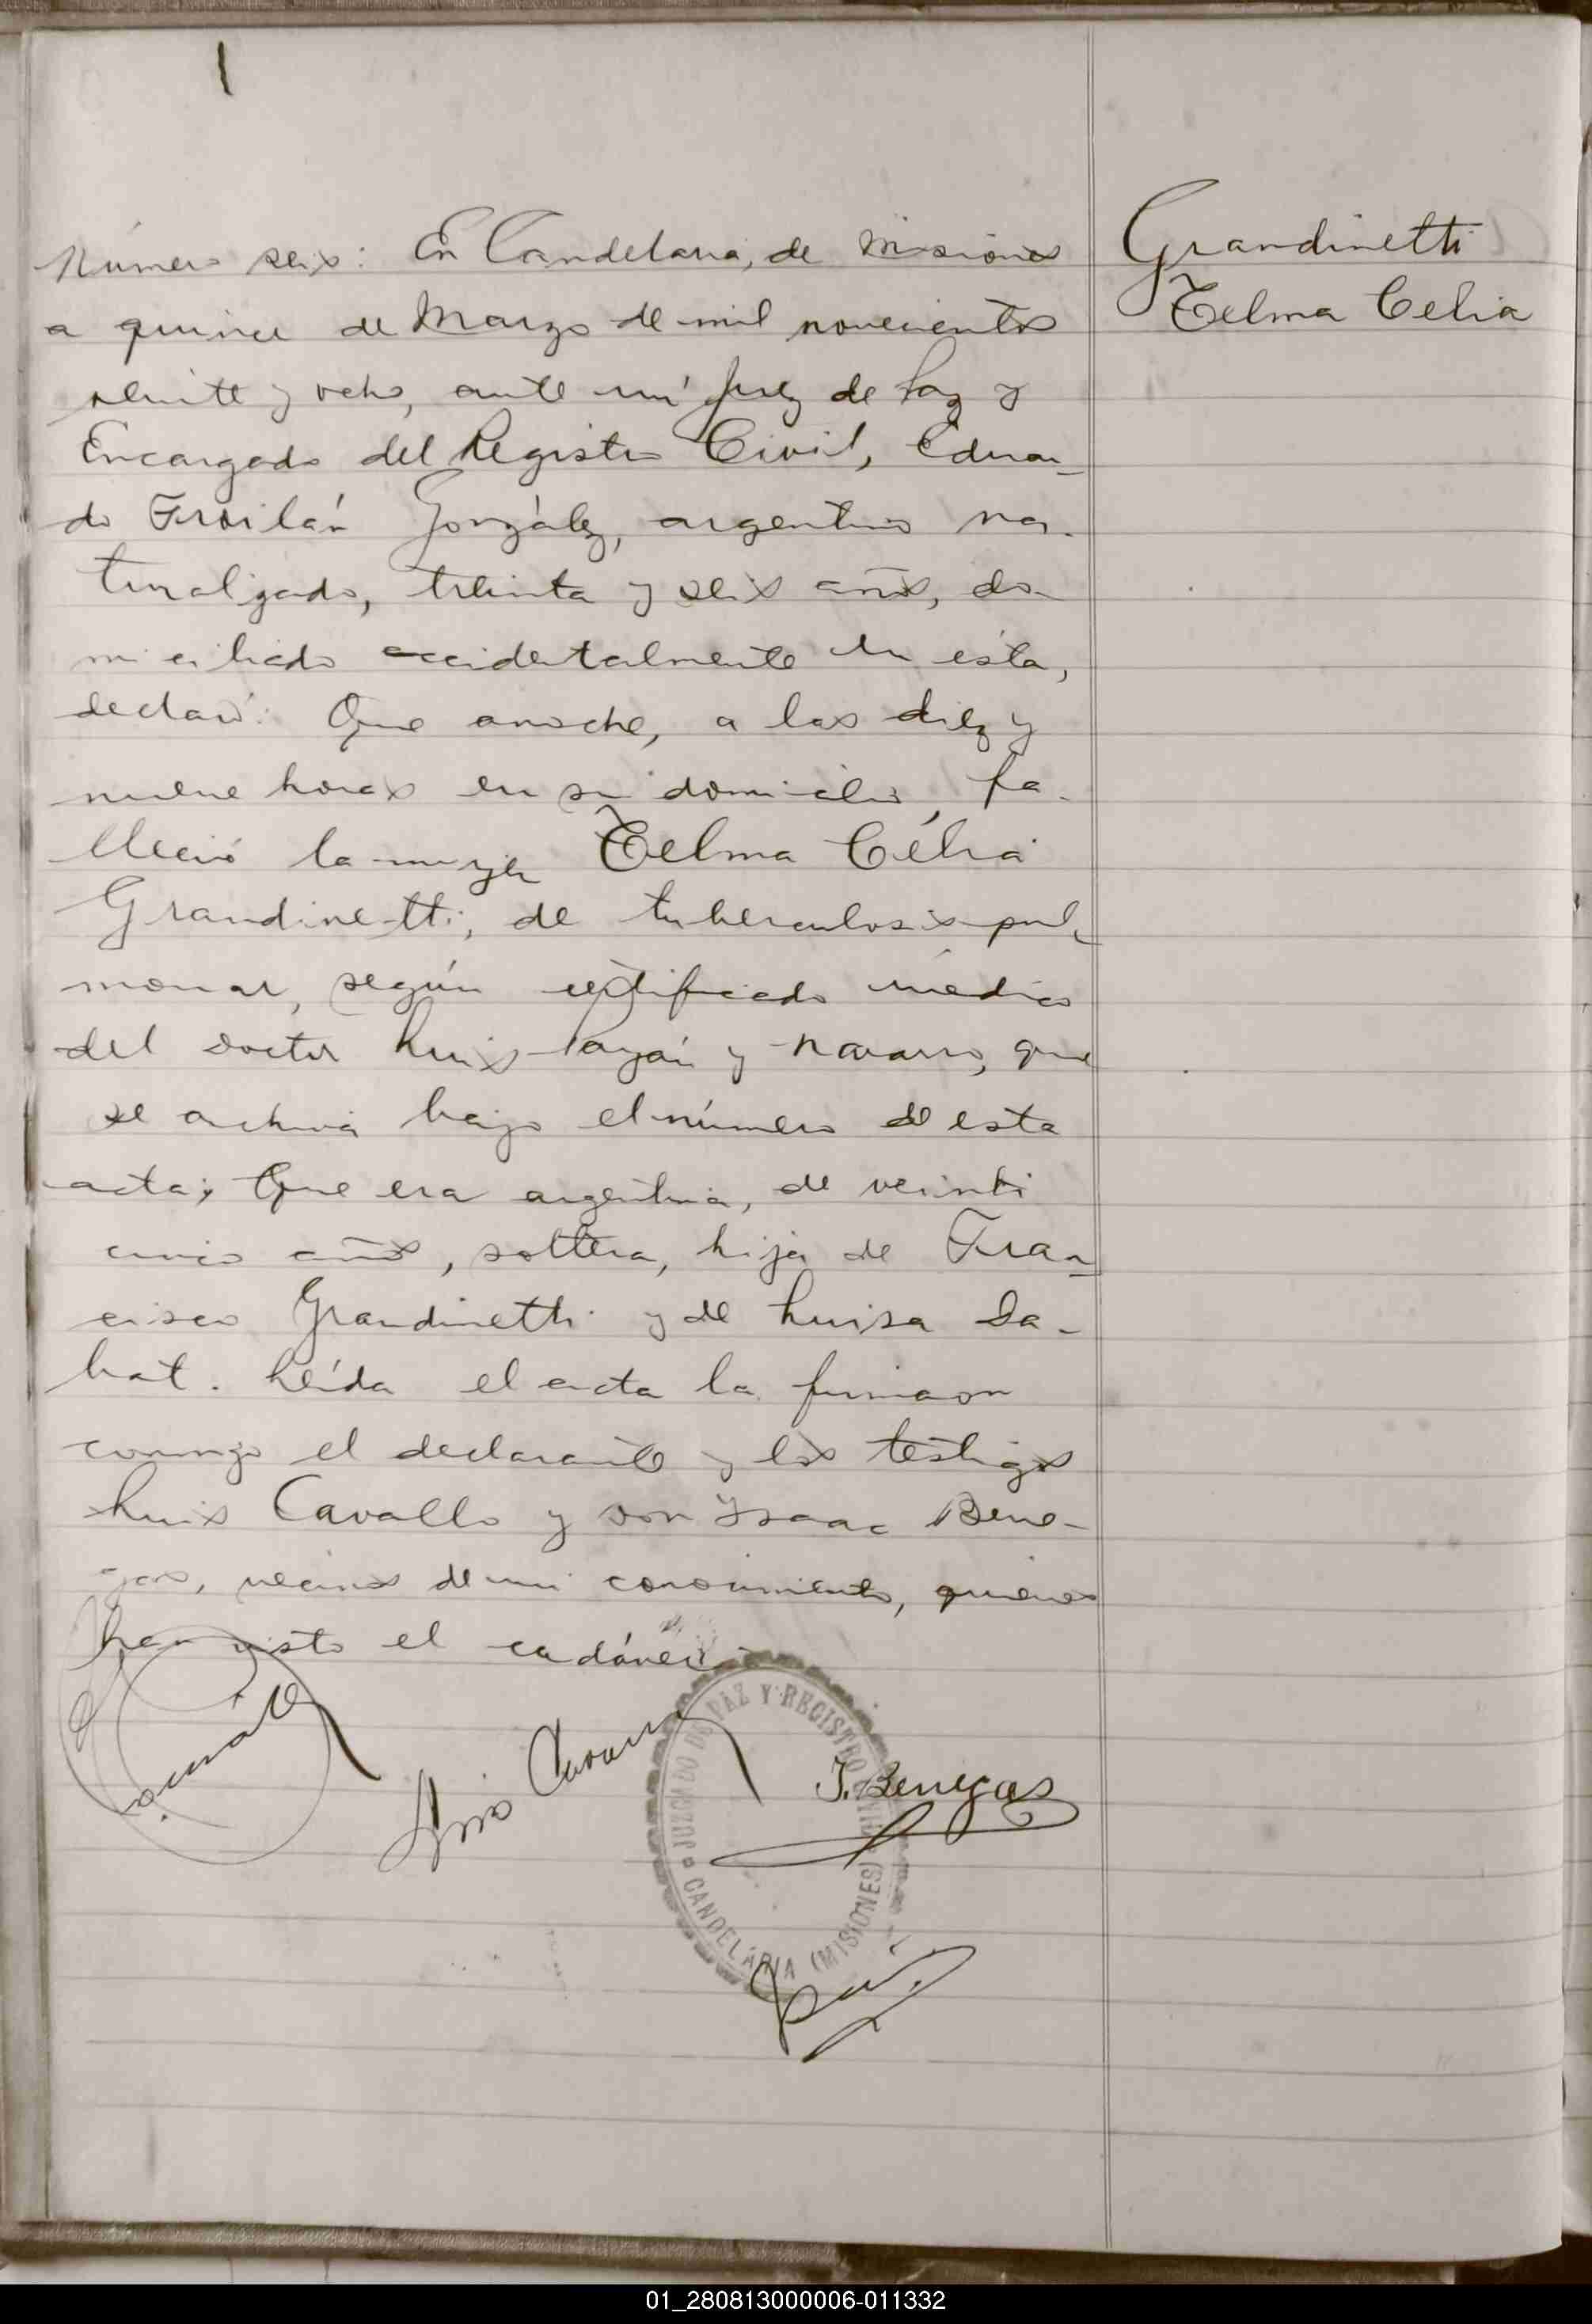 Número seis: En Candelaria, de Misiones
a quince de Marzo de mil novecientos
veinte y ocho, ante mí Juez de Paz y
Encargado del Registro Civil, Eduar-
do Froilán González, argentino na-
turalizado, treinta y seis años, do-
miciliado accidentalmente en ésta,
declaró: Que anoche, a las diez y
nueve horas en su domicilio, fa-
lleció la mujer Telma Célia
Grandinetti, de tuberculosis pul-
monar, según certificado médico
del Doctor Luis Payán y Navarro, que
se archiva bajo el número de esta
acta; Que era argentina, de veinti
cinco años, soltera, hija de Fran-
cisco Grandinetti y de Luisa Sa-
bat. Leída el acta la firmaron
conmigo el declarante y los testigos
Luis Cavallo y Don Ysaac Bene-
gas, vecinos de mi conocimiento, quienes
han visto el cadáver.
Grandinetti
Telma Celia
Luis
J. Benegas
JUZGADO DE PAZ Y REGISTRO CIVIL
CANDELARIA (MISIONES)
01_280813000006-011332